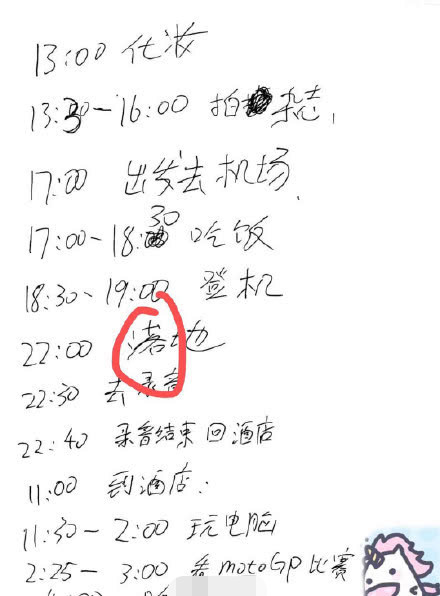 13:00 化妆
13:30-16:00 拍杂志,
17:00 出发去机场.
17:00-18:30 吃饭
18:30-19:00 登机
22:00 落地
22:30 去录音
22:40 录音结束回酒店
11:00 到酒店:
11:30-2:00 玩电脑
2:25-3:00 看motoGP比赛